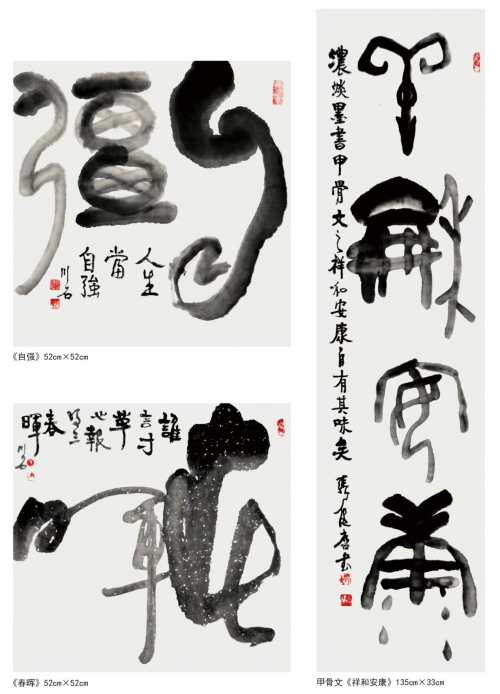 自強
人生
當
自強
川石
《自强》52cm×52cm
春暉
誰
言寸
草
心報
得三
春
暉
川石
《春晖》52cm×52cm
祥和安康
濃淡墨書甲骨文之祥和安康自有其味矣
甲骨文《祥和安康》135cm×33cm